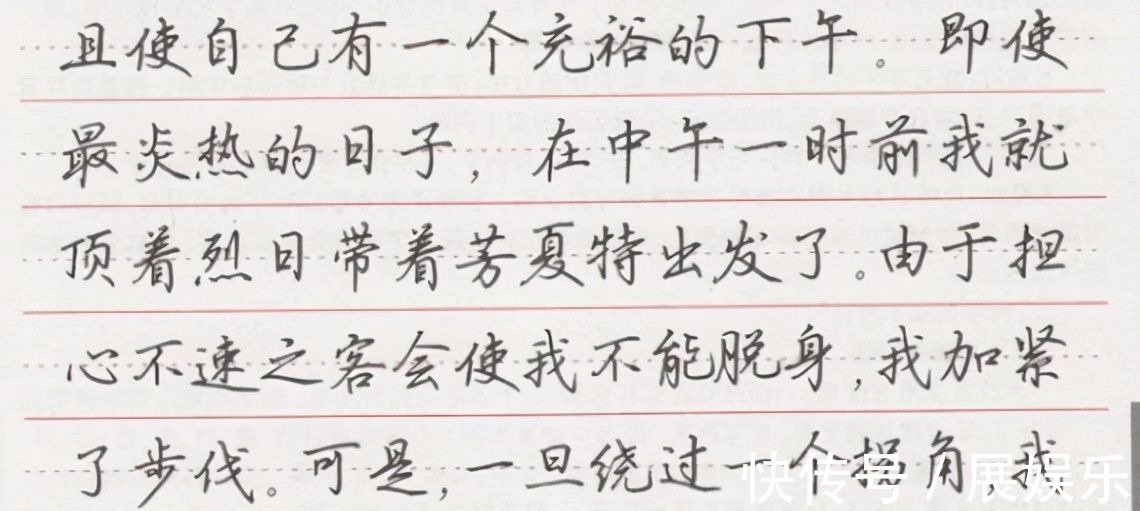 且使自己有一个充裕的下午。即使
最炎热的日子，在中午一时前我就
顶着烈日带着芳夏特出发了。由于担
心不速之客会使我不能脱身，我加紧
了步伐。可是，一旦绕过一个拐角，我
快传号/展娱乐